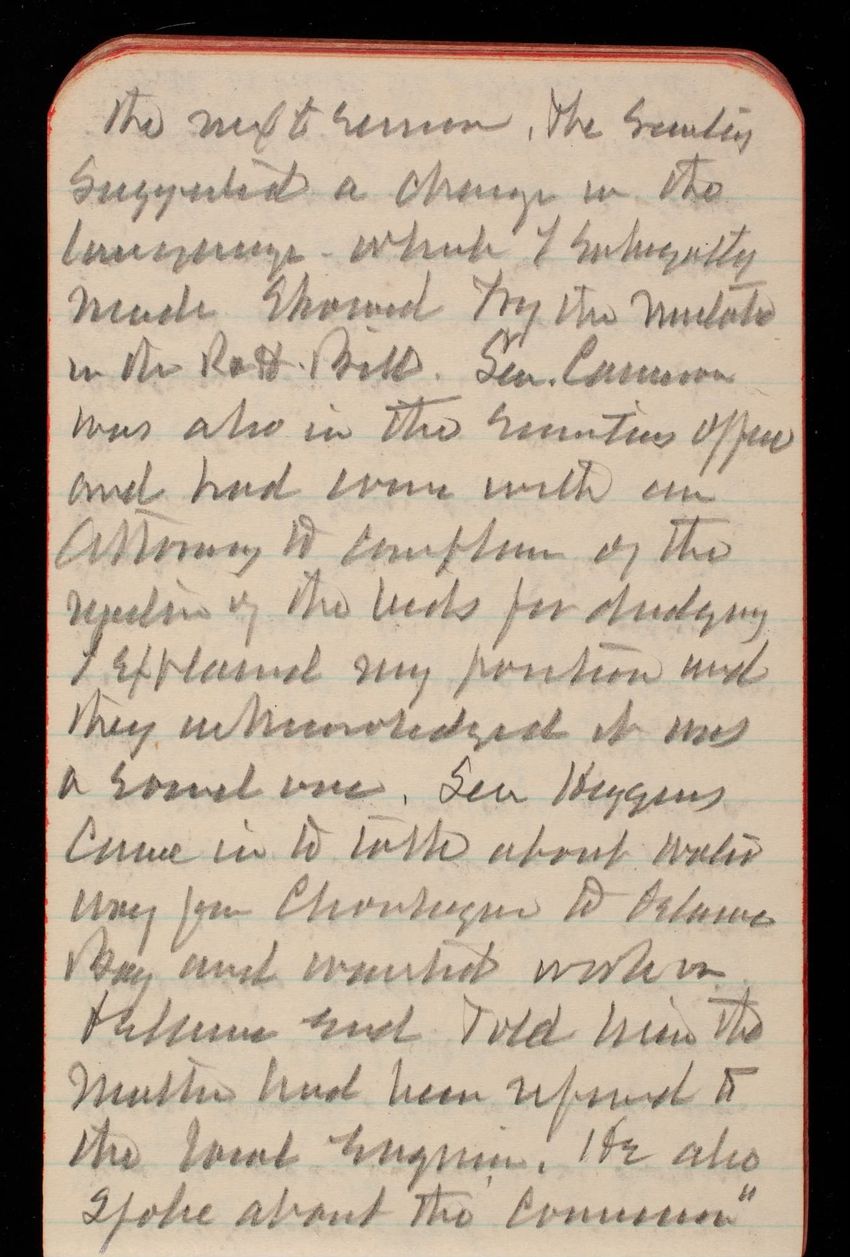 the next session, the Secretary
suggested a change in the
language - which I
made showed by the
in the R & H. Bill. Sen. Cameron
was also in the Secretarys office
and had come with an
Attorney to complain of the
rejection of the bids for dredging
I explained my position and
they acknowledged it was
a sound one. Sen Higgins
came in to talk about water
way from Chesapeake to Delaware
Bay and wanted work on
Delaware end told him the
matter had been referred to
the local Engineer. He also
spoke about the Chinchinchin"